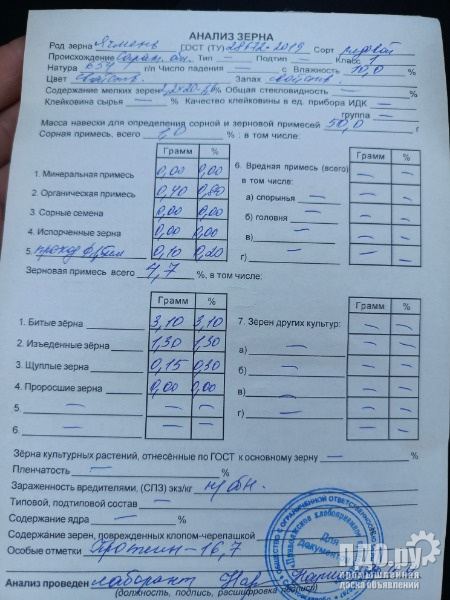 АНАЛИЗ ЗЕРНА
Род зерна Ячмень ГОСТ (ТУ) 28672-2019 Сорт рядовой
Происхождение Сарат. обл. Тип — Подтип — Класс 1
Натура 654 г/л Число падения — с Влажность 10,0 %
Цвет свойств. Запах свойств.
Содержание мелких зерен 2,2х20- Общая стекловидность — %
Клейковина сырья — % Качество клейковины в ед. прибора ИДК —
группа —
Масса навески для определения сорной и зерновой примесей 50,0 г
Сорная примесь, всего 1,0 % : в том числе:
Грамм %
1. Минеральная примесь 0,00 0,00
2. Органическая примесь 0,40 0,80
3. Сорные семена 0,00 0,00
4. Испорченные зерна 0,00 0,00
5. проход 0,10 0,20
Грамм %
6. Вредная примесь (всего) — —
в том числе: — —
а) спорынья — — —
б) головня — — —
в) — — —
г) — — —
Зерновая примесь всего 4,7 %, в том числе:
Грамм %
1. Битые зёрна 3,10 3,10
2. Изъеденные зёрна 1,30 1,30
3. Щуплые зерна 0,15 0,30
4. Проросшие зерна 0,00 0,00
5 — — —
6. — — —
Грамм %
7. Зёрен других культур: — —
а) — — —
б) — — —
в) — — —
г) — — —
Зёрна культурных растений, отнесённые по ГОСТ к основному зерну — %
Пленчатость — %
Зараженность вредителями, (СПЗ) экз/кг н/обн.
Типовой, подтиповой состав —
Содержание ядра — %
Содержание зерен, поврежденных клопом-черепашкой
Особые отметки Протеин - 16,7
Анализ проведен лаборант
(должность, подпись, расшифровка подписи)
Для документов
ПДО.ру
промышленная
доска объявлений